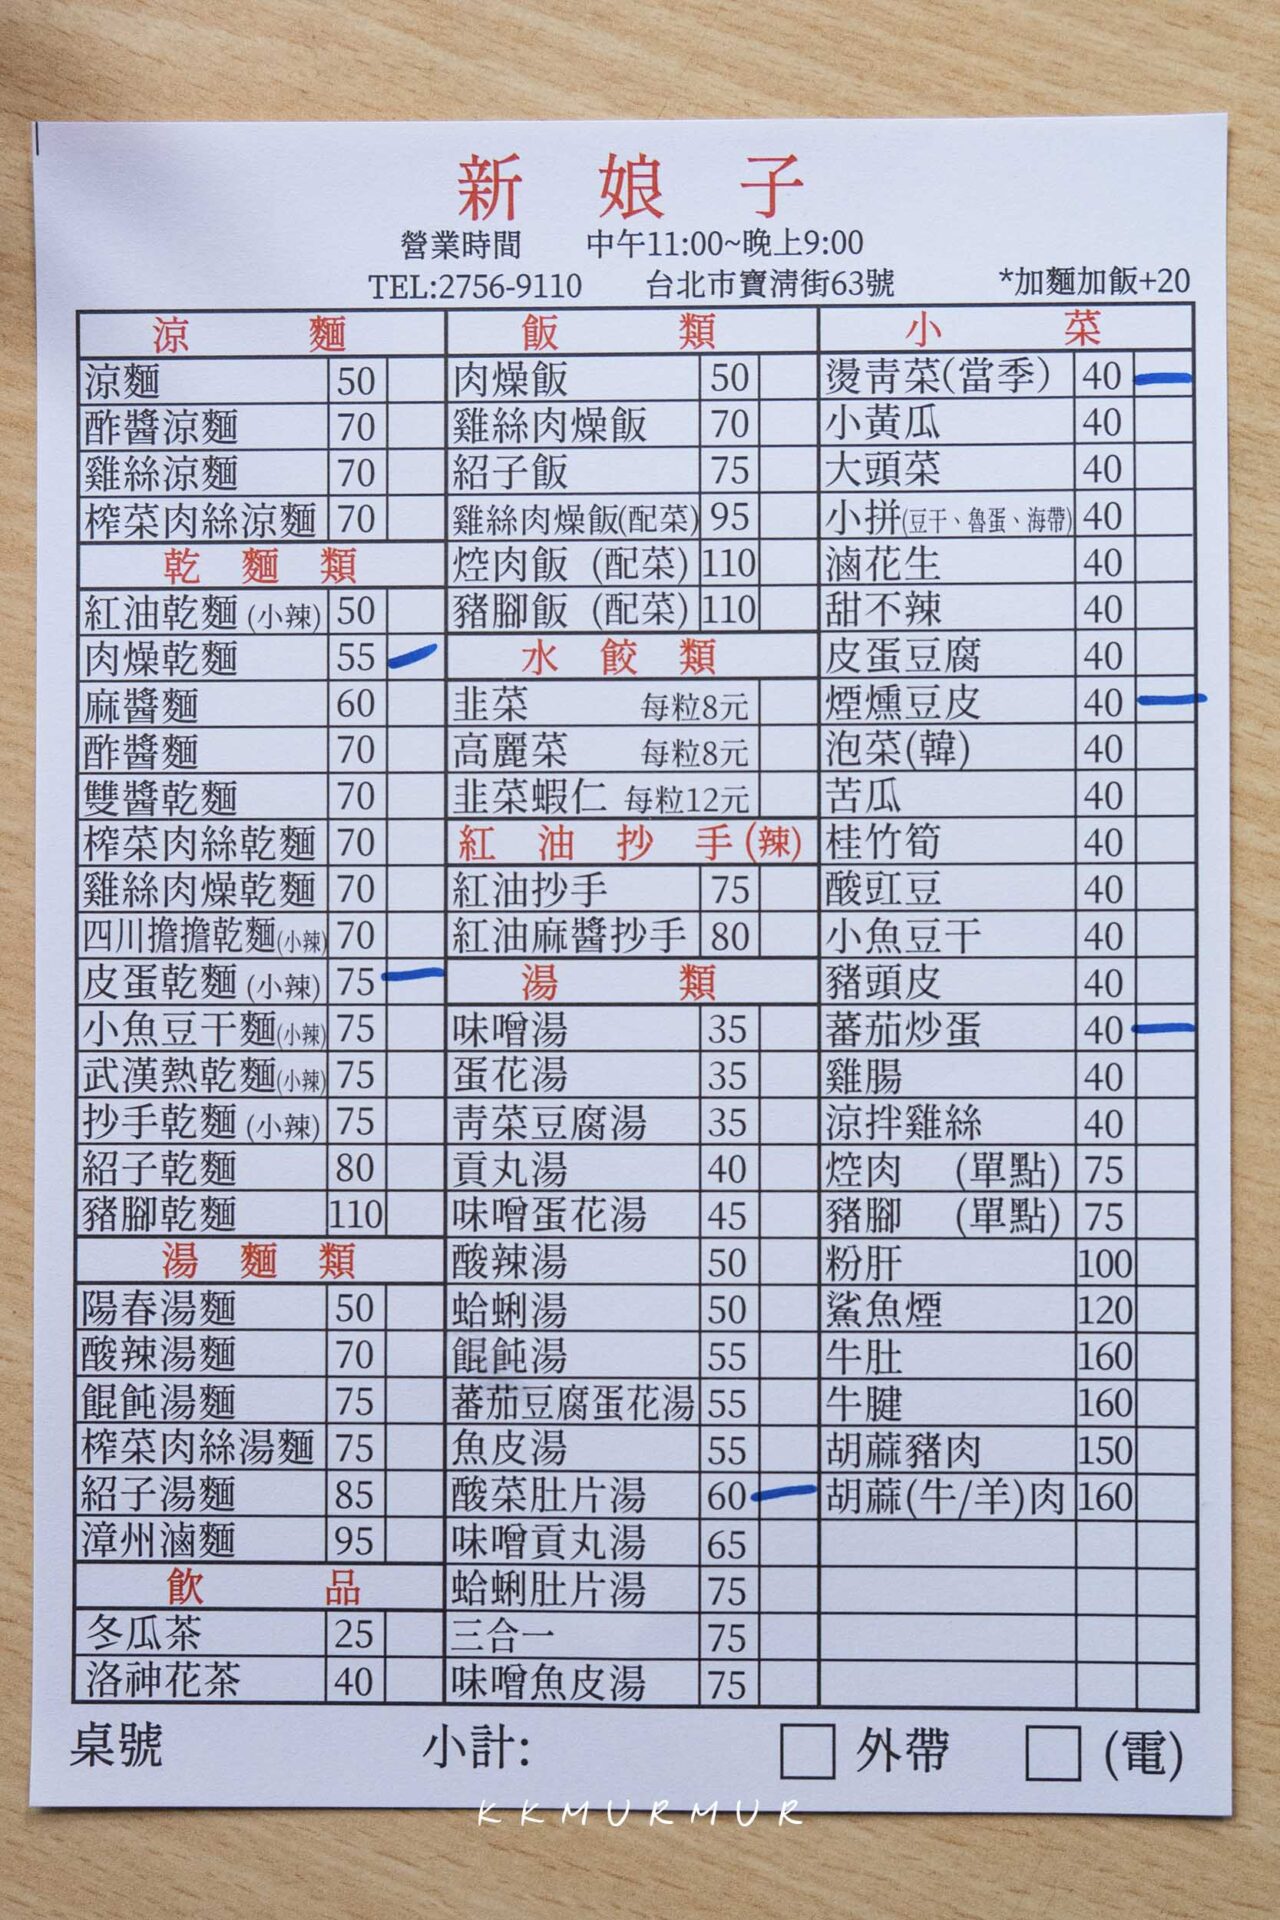 新娘子
營業時間 中午11:00~晚上9:00
TEL:2756-9110 台北市寶清街63號 *加麵加飯+20
涼麵
涼麵 50
酢醬涼麵 70
雞絲涼麵 70
榨菜肉絲涼麵 70
乾麵類
紅油乾麵(小辣) 50
肉燥乾麵 55
麻醬麵 60
酢醬麵 70
雙醬乾麵 70
榨菜肉絲乾麵 70
雞絲肉燥乾麵 70
四川擔擔乾麵(小辣) 70
皮蛋乾麵(小辣) 75
小魚豆干麵(小辣) 75
武漢熱乾麵(小辣) 75
抄手乾麵(小辣) 75
紹子乾麵 80
豬腳乾麵 110
湯麵類
陽春湯麵 50
酸辣湯麵 70
餛飩湯麵 75
榨菜肉絲湯麵 75
紹子湯麵 85
漳州滷麵 95
飲品
冬瓜茶 25
洛神花茶 40
飯類
肉燥飯 50
雞絲肉燥飯 70
紹子飯 75
雞絲肉燥飯(配菜) 95
焢肉飯(配菜) 110
豬腳飯(配菜) 110
水餃類
韭菜 每粒8元
高麗菜 每粒8元
韭菜蝦仁 每粒12元
紅油抄手(辣)
紅油抄手 75
紅油麻醬抄手 80
湯類
味噌湯 35
蛋花湯 35
青菜豆腐湯 35
貢丸湯 40
味噌蛋花湯 45
酸辣湯 50
蛤蜊湯 50
餛飩湯 55
蕃茄豆腐蛋花湯 55
魚皮湯 55
酸菜肚片湯 60
味噌貢丸湯 65
蛤蜊肚片湯 75
三合一 75
味噌魚皮湯 75
小菜
燙青菜(當季) 40
小黃瓜 40
大頭菜 40
小拼(豆干、魯蛋、海帶) 40
滷花生 40
甜不辣 40
皮蛋豆腐 40
煙燻豆皮 40
泡菜(韓) 40
苦瓜 40
桂竹筍 40
酸豇豆 40
小魚豆干 40
豬頭皮 40
蕃茄炒蛋 40
雞腸 40
涼拌雞絲 40
焢肉 (單點) 75
豬腳 (單點) 75
粉肝 100
鯊魚煙 120
牛肚 160
牛腱 160
胡蔴豬肉 150
胡蔴(牛/羊)肉 160
桌號 小計: 外帶 (電)
KKMURMUR